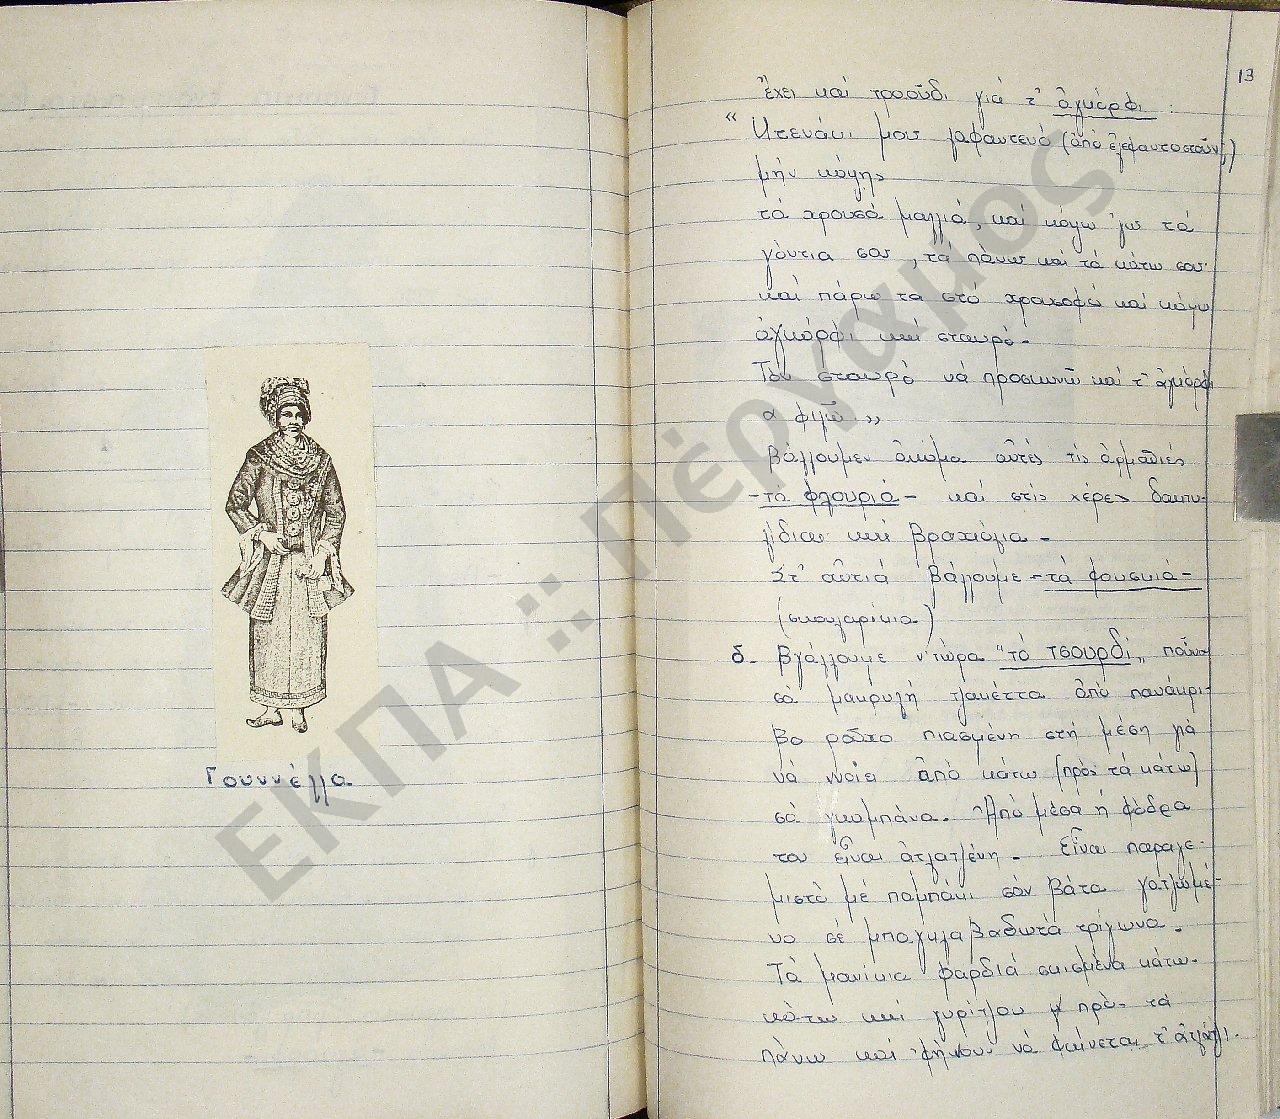 Γουννέλλα
13
ἔχει καί τραούδι γιά τ' ἀγκόρφι :
"Χτενάκι μου λαφαντενό (ἀπό ἐλεφαντοστοῦν,)
μήν κόψης
τά χρουσά μαλλιά, καί κόψω 'γω τά
γόντια σου, τά πάνω καί τά κάτω σου
καί πάρω τα στό χρυσοφό καί κάμω
ἀγκόρφι καί σταυρό-
Τόν σταυρό νά προσκυνῶ καί τ' ἀγκόρφι
α φιλῶ"
Βάλλουμεν ἀκόμα αὐτές τίς ἀρμαθιές
-τά φλουριά- καί στίς χέρες δακτυ-
λίδια καί βραχιόλια-
Στ' αὐτιά βάλλουμε -τά φουσκιά-
(σκουλαρίκια)
δ. Βγάλλουμε ν'τώρα "τό τσουρδί" ποῦναι
σά μακρυλή τζακέττα ἀπό πανάκρι-
βο ροῦχο πιασμένη στή μέση γιά
νά νοίει ἀπό κάτω (πρός τά κάτω)
σά καμπάνα. Ἀπό μέσα ἡ φόδρα
του εἶναι ἀτλατζένη- Εἶναι παραγε-
μιστό μέ παμπάκι σάν βάτα γατζωμέ-
νο σέ μπακλαβαδωτά τρίγωνα.
Τά μανίκια φαρδιά σκισμένα κάτω-
κάτω καί γυρίζουν πρός τά
πάνω καί φήνουν νά φαίνεται τ' ἀτλάζι.
ΕΚΠΑ :: Πέργαμος